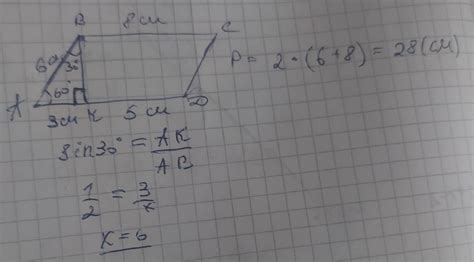 B 8 см C
6см 30°
60°
A 3см K 5 см D
P = 2 · (6+8) = 28 (см)
sin30° = AK / AB
1/2 = 3/x
x = 6